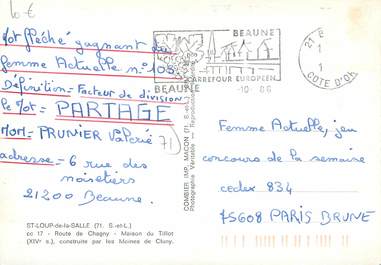 10€
Mot fléché gagnant du
femme Actuelle n° 105
Définition = Facteur de division
le Mot = PARTAGE
Nom = PRUNIER Valérie
71
adresse = 6 rue des
noisetiers
21200 Beaune.
ST-LOUP-de-la-SALLE (71. S.-et-L.)
cc 17 - Route de Chagny - Maison du Tillot
(XIVe s.), construite par les Moines de Cluny.
COMBIER IMP. MACON (71. S.-et-L.)
Photographie Véritable - Reproduction
BEAUNE
CARREFOUR EUROPEEN
BEAUNE
-10-86
21 B
1
1
COTE D'OR
Femme Actuelle, jeu
concours de la semaine
cedex 834
75608 PARIS BRUNE